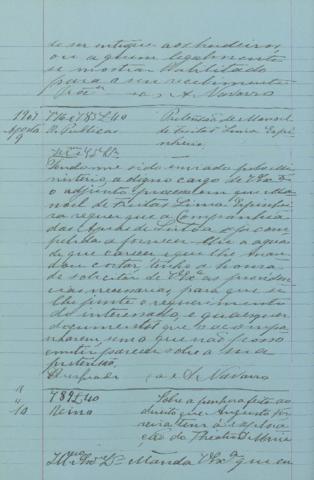 de ser entregue aos herdeiros,
ou a quem legalmente
se mostrar habilitado
para o seu recebimento
A. Navarro
1907
Agosto
9
Pretensão de Manoel
de Freitos Lima Espi-
nheira.
O. Publicas
Tendo-me sido enviado pelo Mi-
nisterio, a digno cargo de V. Ex.ª
o adjunto processo em que Ma-
noel de Freitas Lima Espinhei-
ra requer que a Companhia
das Aguas de Lisboa seja com-
pelida a fornecer-lhe a agua
de que carece e que lhe man-
dou cortar, tenho a honra
de solicitar de V. Ex.ª as providen-
cias necessarias, para que se
lhe junte o requerimento
do interessado, e quaesquer
documentos que o acompa-
nharem, sem o que não posso
emittir parecer sobre a sua
pretensão.
A. Navarro
10
Reino
Sobre a penhora feita ao
direito que Augusto
tem á explora-
ção do Theatro de D. Maria
Manda V. Ex.ª que eu